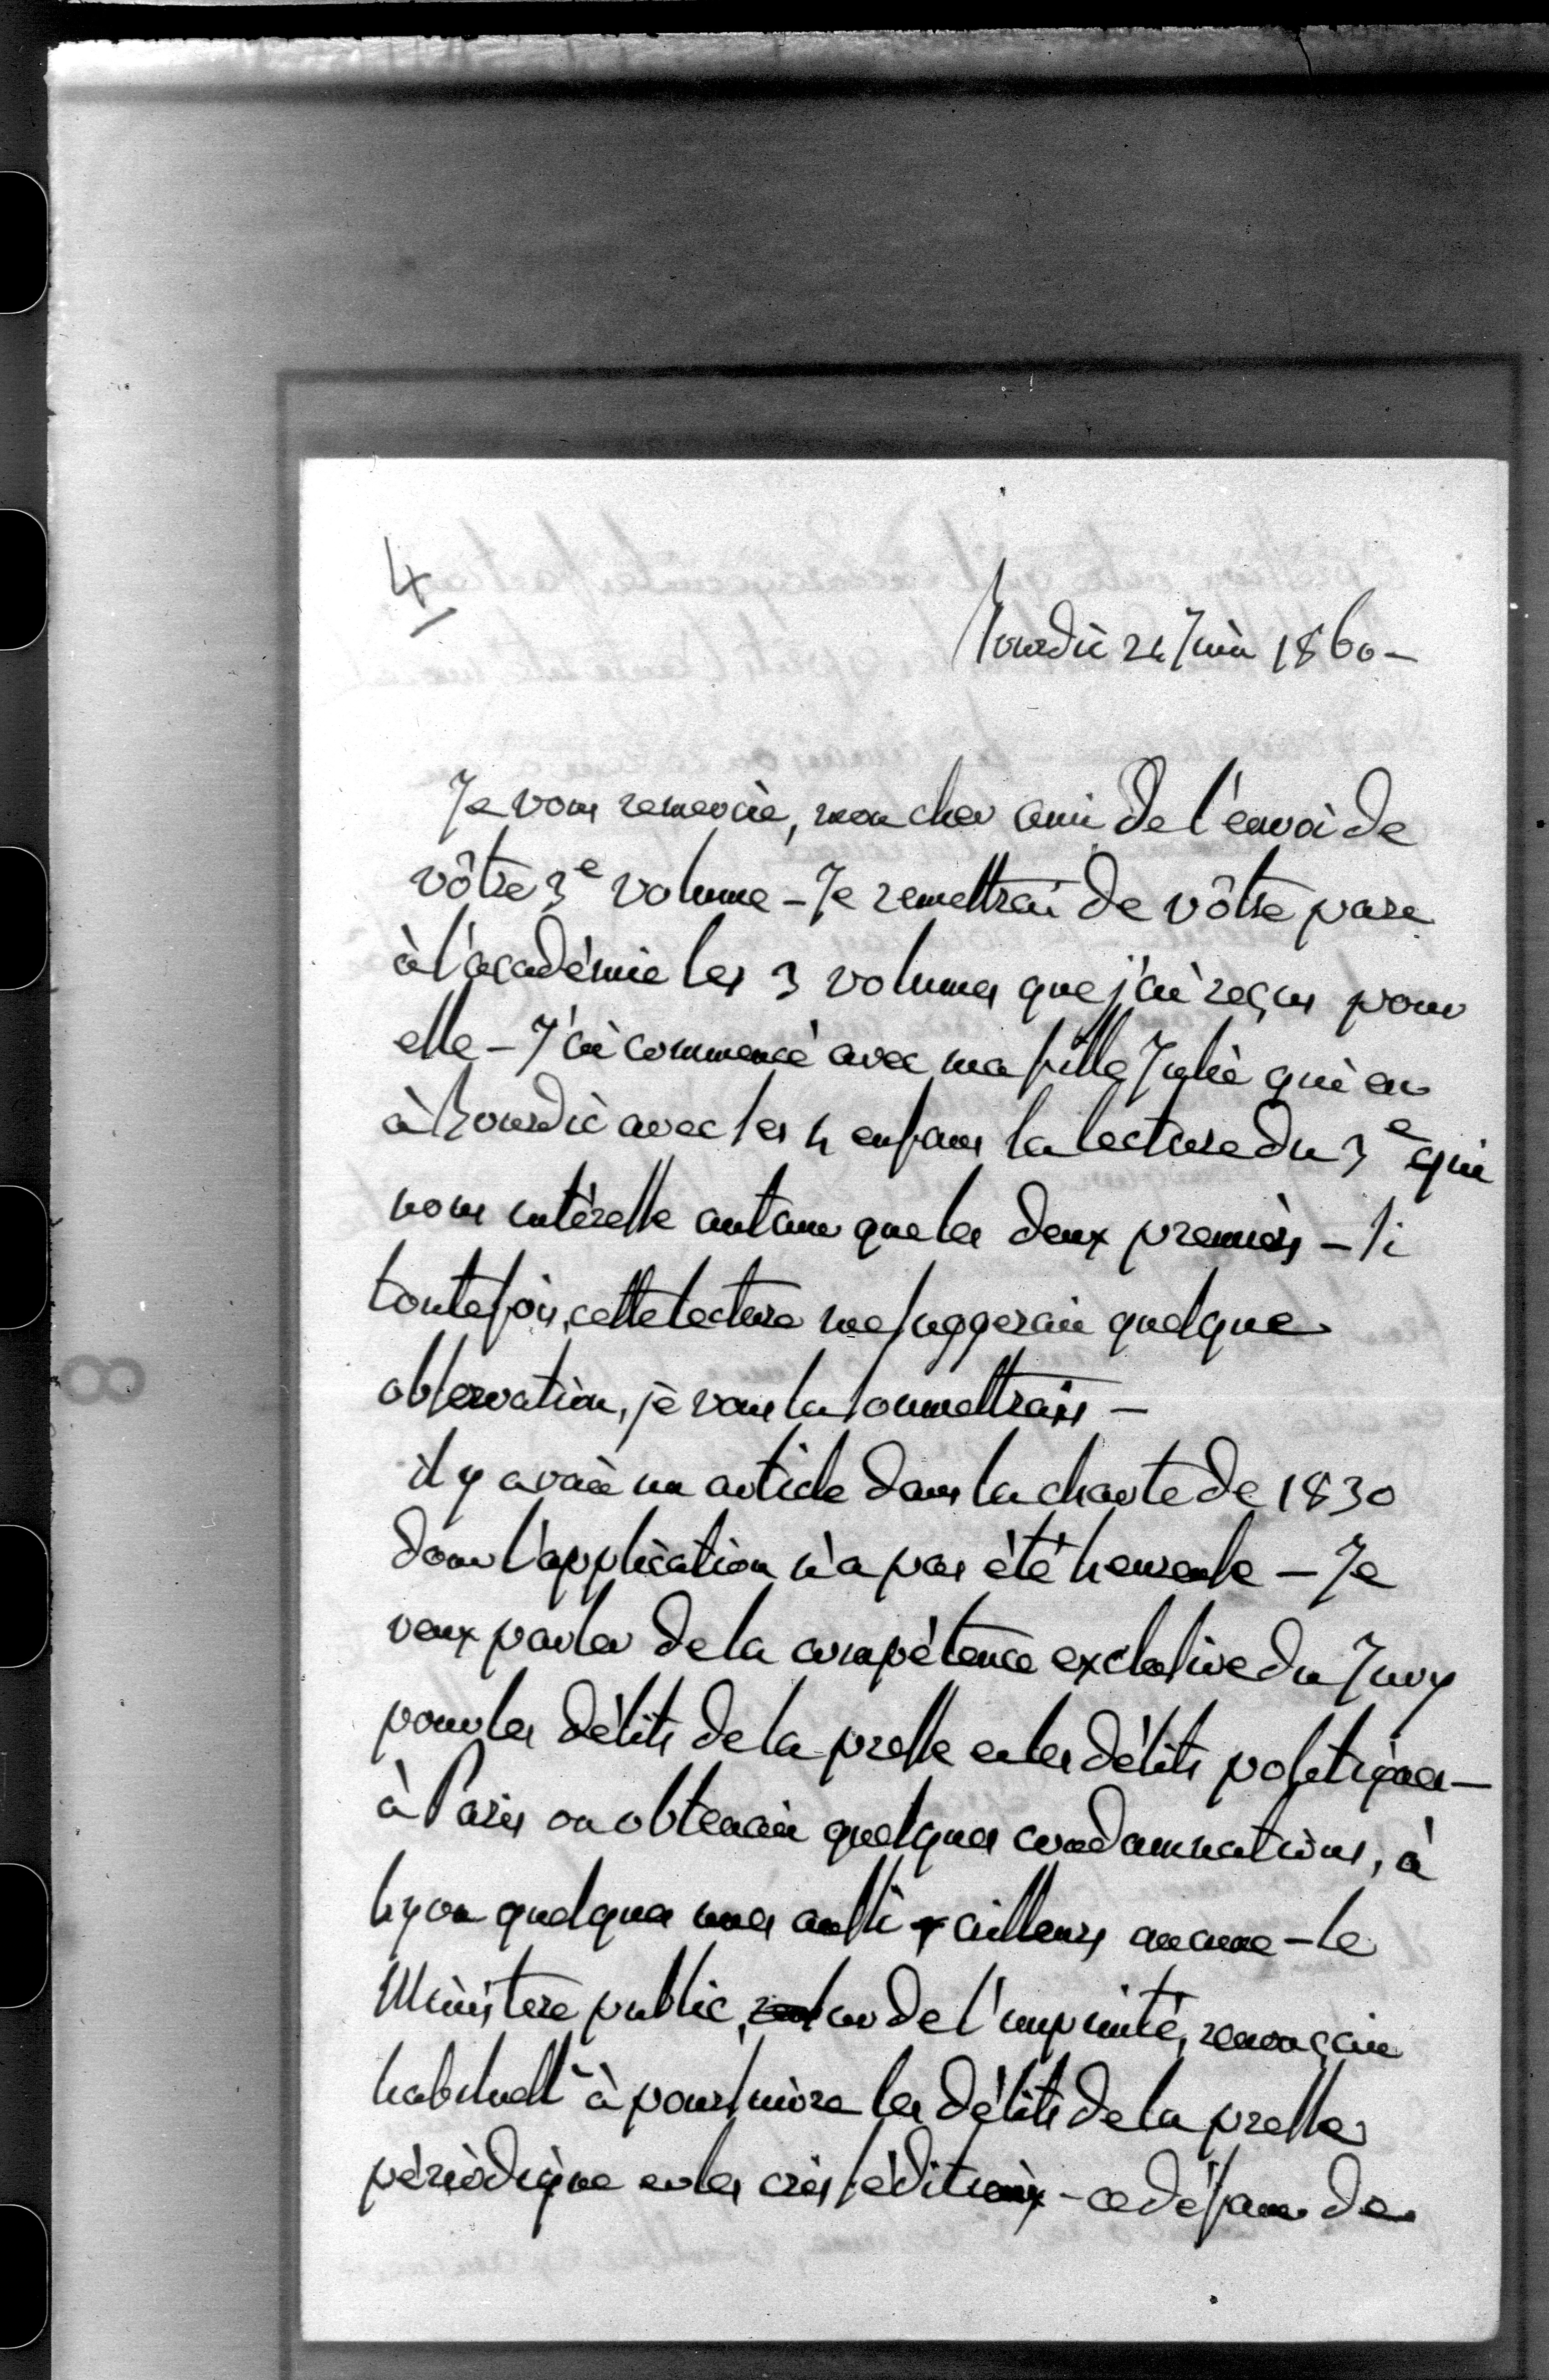 4
Hourdié 24 Juin 1860 -
Je vous remercie, mon cher ami de l'envoi de
vôtre 3e volume - Je remettrai de vôtre part
à l'académie les 3 volumes que j'ai reçus pour
elle - J'ai commencé avec ma fille Julie qui est
à hourdié avec les 4 enfans la lecture du 3e qui
nous intéresse autant que les deux premiers - Si
toutefois, cette lecture me suggerait quelque
observation, je vous la soumettrais -
il y avait un article dans la charte de 1830
dont l'application n'a pas été heureuse - Je
veux parler de la compétence exclusive du Jury
pour les délits de la presse et les délits politiques -
à Paris on obtenait quelques condamnations, à
Lyon quelques unes aussi ailleurs aucune - le
Ministere public, las de l'impunité, renonçait
habituellt à poursuivre les délits de la presse
périodique et les cris séditieux - ce défaut de